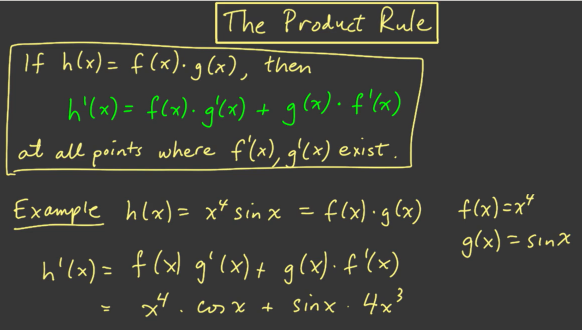 The Product Rule
If h(x) = f(x)·g(x), then
h'(x) = f(x)·g'(x) + g(x)·f'(x)
at all points where f'(x), g'(x) exist.
Example h(x) = x⁴ sin x = f(x)·g(x) f(x) = x⁴
g(x) = sin x
h'(x) = f(x) g'(x) + g(x)·f'(x)
= x⁴ · cos x + sin x · 4x³